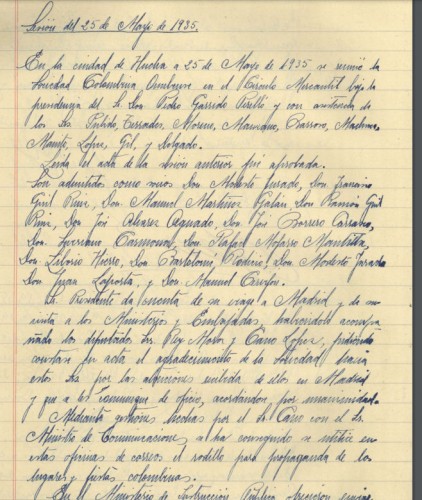 Sesión del 25 de Mayo de 1935.
En la ciudad de Huelva a 25 de Mayo de 1935 se reunió la
Sociedad Colombina Onubense en el Círculo Mercantil bajo la
presidencia del Sr. Don Pedro Garrido Perelló y con asistencia
de los Srs. Pulido, Terrades, Moreno, Marchena,
López, Gil, y Delgado.
Leída el acta de la sesión anterior fué aprobada.
Son admitidos como socios Don Modesto Jurado, Don Francisco
Don Manuel Martínez Galán, Don Ramón
Don José Alvarez Aguado, Don José Borrero
Don Carmona, Don Rafael Mojarro Mantilla,
Don Hierro, Don Bartolomé Don Modesto Jurado
Don Juan y Don Manuel
El Presidente da cuenta de su viaje a Madrid y de su
visita a los Ministerios y Embajadas, habiéndole acompa-
ñado los diputados Srs. Rey Mora y Cano López, pidiendo
conste en acta el agradecimiento de la Sociedad hacia
estos Srs. por las atenciones de ellos en Madrid
y que se les comunique de oficio, acordándose por unanimidad.
Mediante gestiones hechas por el Sr. Cano con el Sr.
Ministro de Comunicaciones, se ha conseguido se utilice en
estas oficinas de correos el rodillo para propaganda de los
lugares y fiestas colombinas.
En el Ministerio de Instrucción Pública